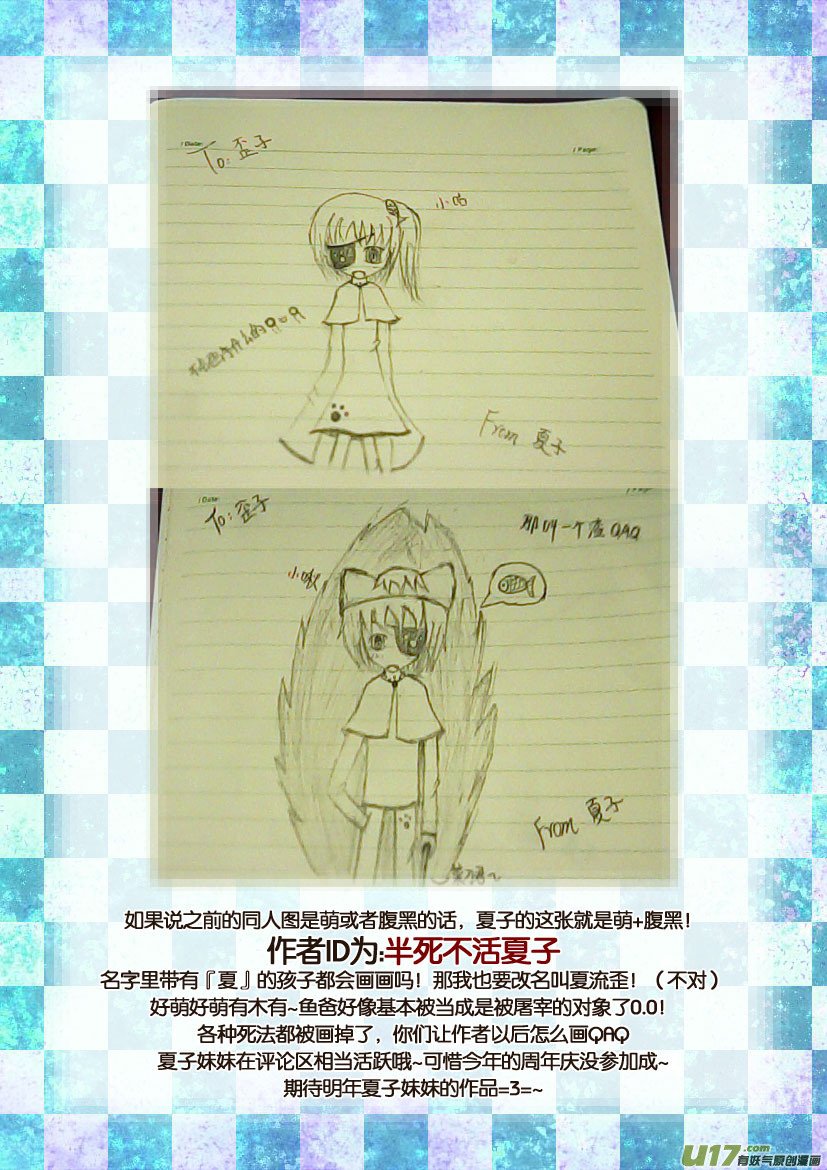 Date:
Page:
To: 歪子
小咕
From 夏子
Date:
To: 歪子
那叫一个渣QAQ
From 夏子
如果说之前的同人图是萌或者腹黑的话，夏子的这张就是萌+腹黑！
作者ID为:半死不活夏子
名字里带有『夏』的孩子都会画画吗！那我也要改名叫夏流歪！（不对）
好萌好萌有木有~鱼爸好像基本被当成是被屠宰的对象了0.0！
各种死法都被画掉了，你们让作者以后怎么画QAQ
夏子妹妹在评论区相当活跃哦~可惜今年的周年庆没参加成~
期待明年夏子妹妹的作品=3=~
U17.com
有妖气原创漫画